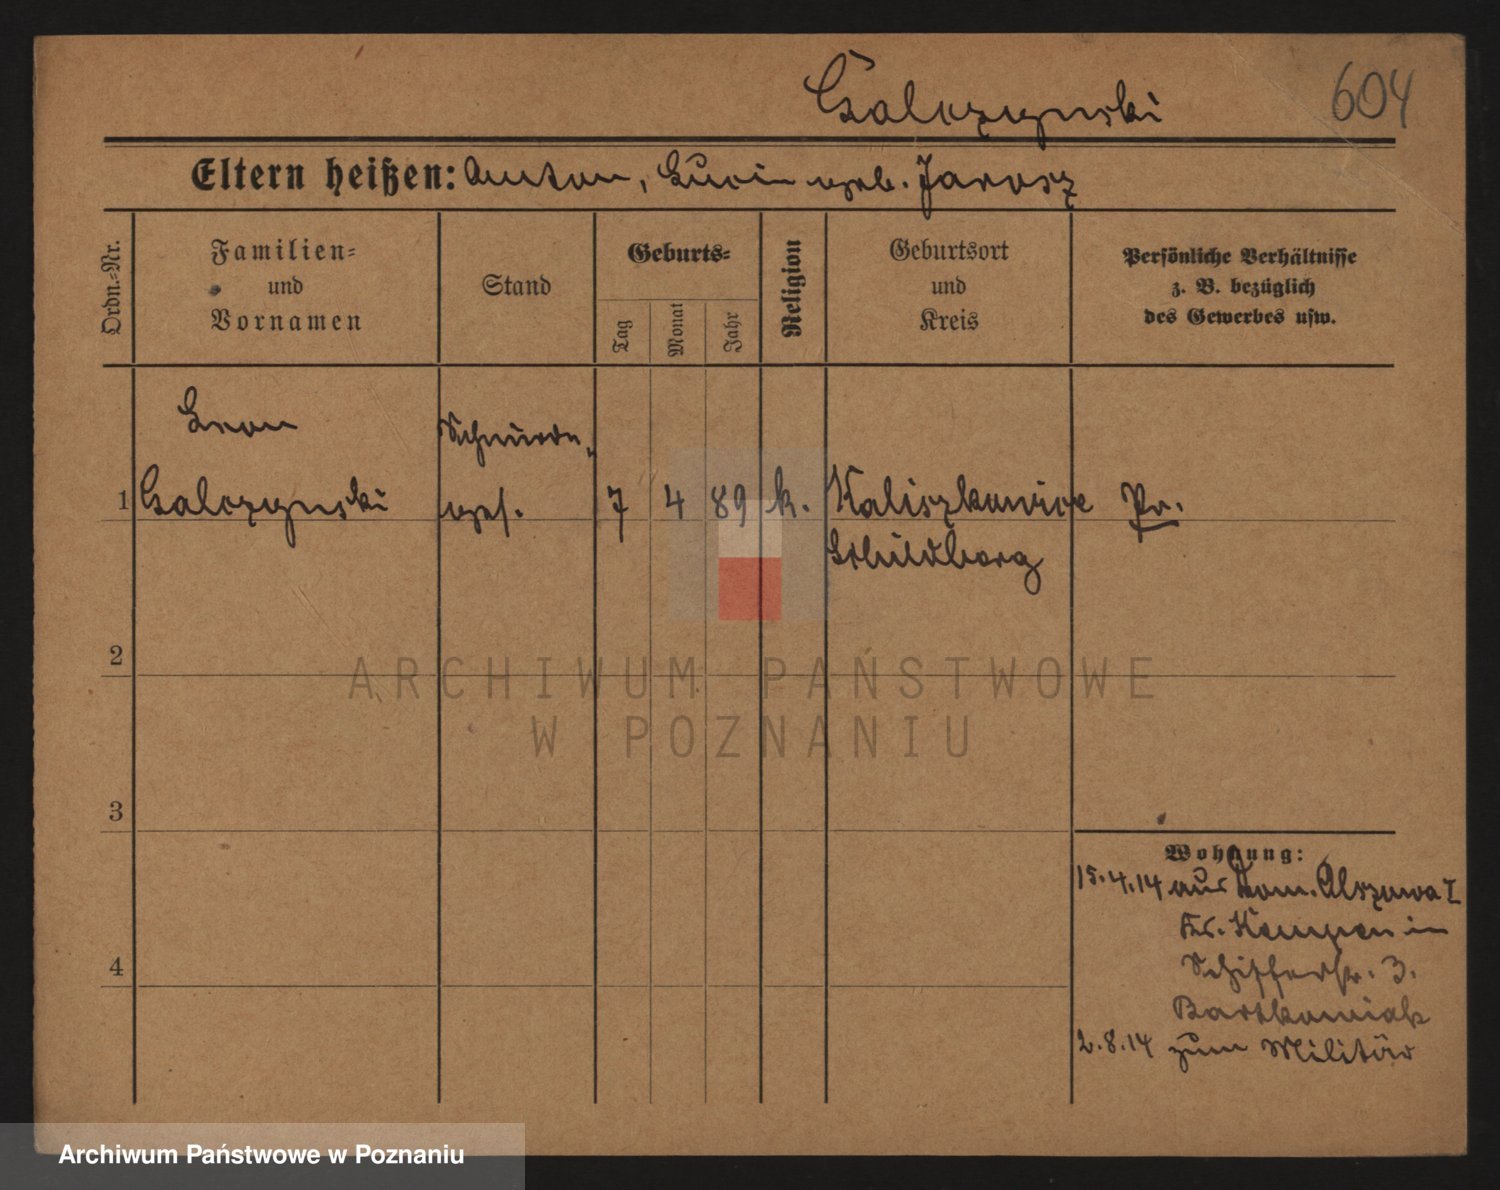 Galczynski
604
Eltern heißen: Anton, Lucia geb. Jarosz
Ordn.-Nr.
Familien-
und
Vornamen
Stand
Geburts-
Tag
Monat
Jahr
Religion
Geburtsort
und
Kreis
Persönliche Verhältnisse
z. B. bezüglich
des Gewerbes usw.
Leon
1 Galczynski
ges.
7 4 89 k.
Kaliszkowice
Schildberg
Pr.
2
3
4
Wohnung:
15.4.14 aus Dom. Olszowa I
Kr. Kempen in
Schifferstr. 3.
Bartkowiak
2.8.14 zum Militär
ARCHIWUM PAŃSTWOWE
W POZNANIU
Archiwum Państwowe w Poznaniu